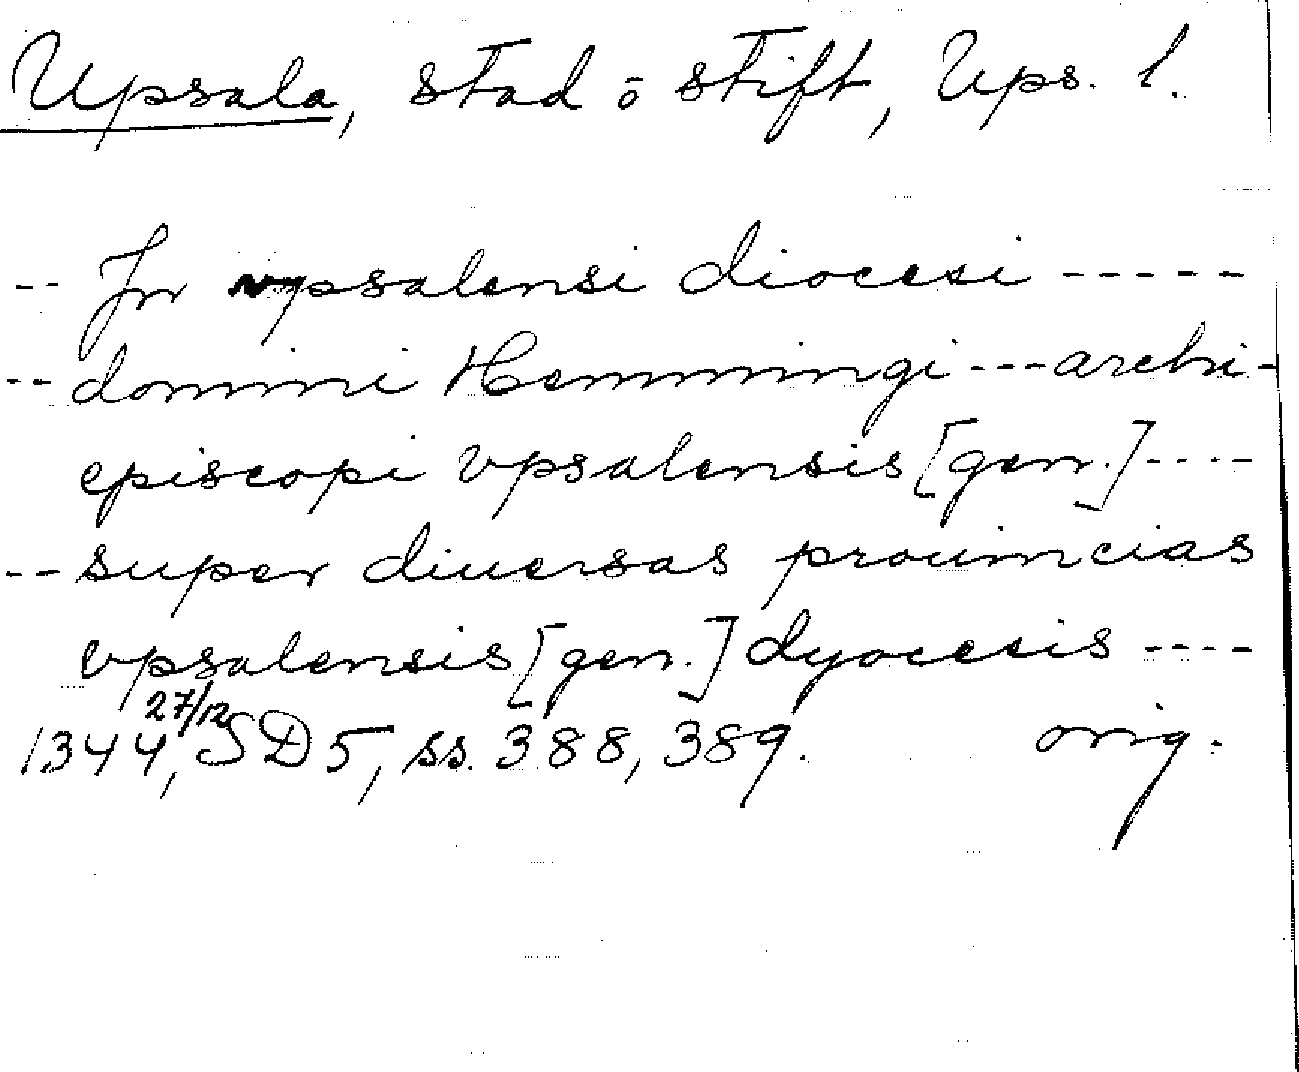 Upsala, stad o stift, Ups. l.
-- Jn vpsalensi diocesi -----
-- domini Hemmingi --- archi-
episcopi vpsalensis [gen.] ----
-- super diuersas prouincias
vpsalensis [gen.] dyocesis ----
1344, 27/12 SD 5, ss. 388, 389. orig.